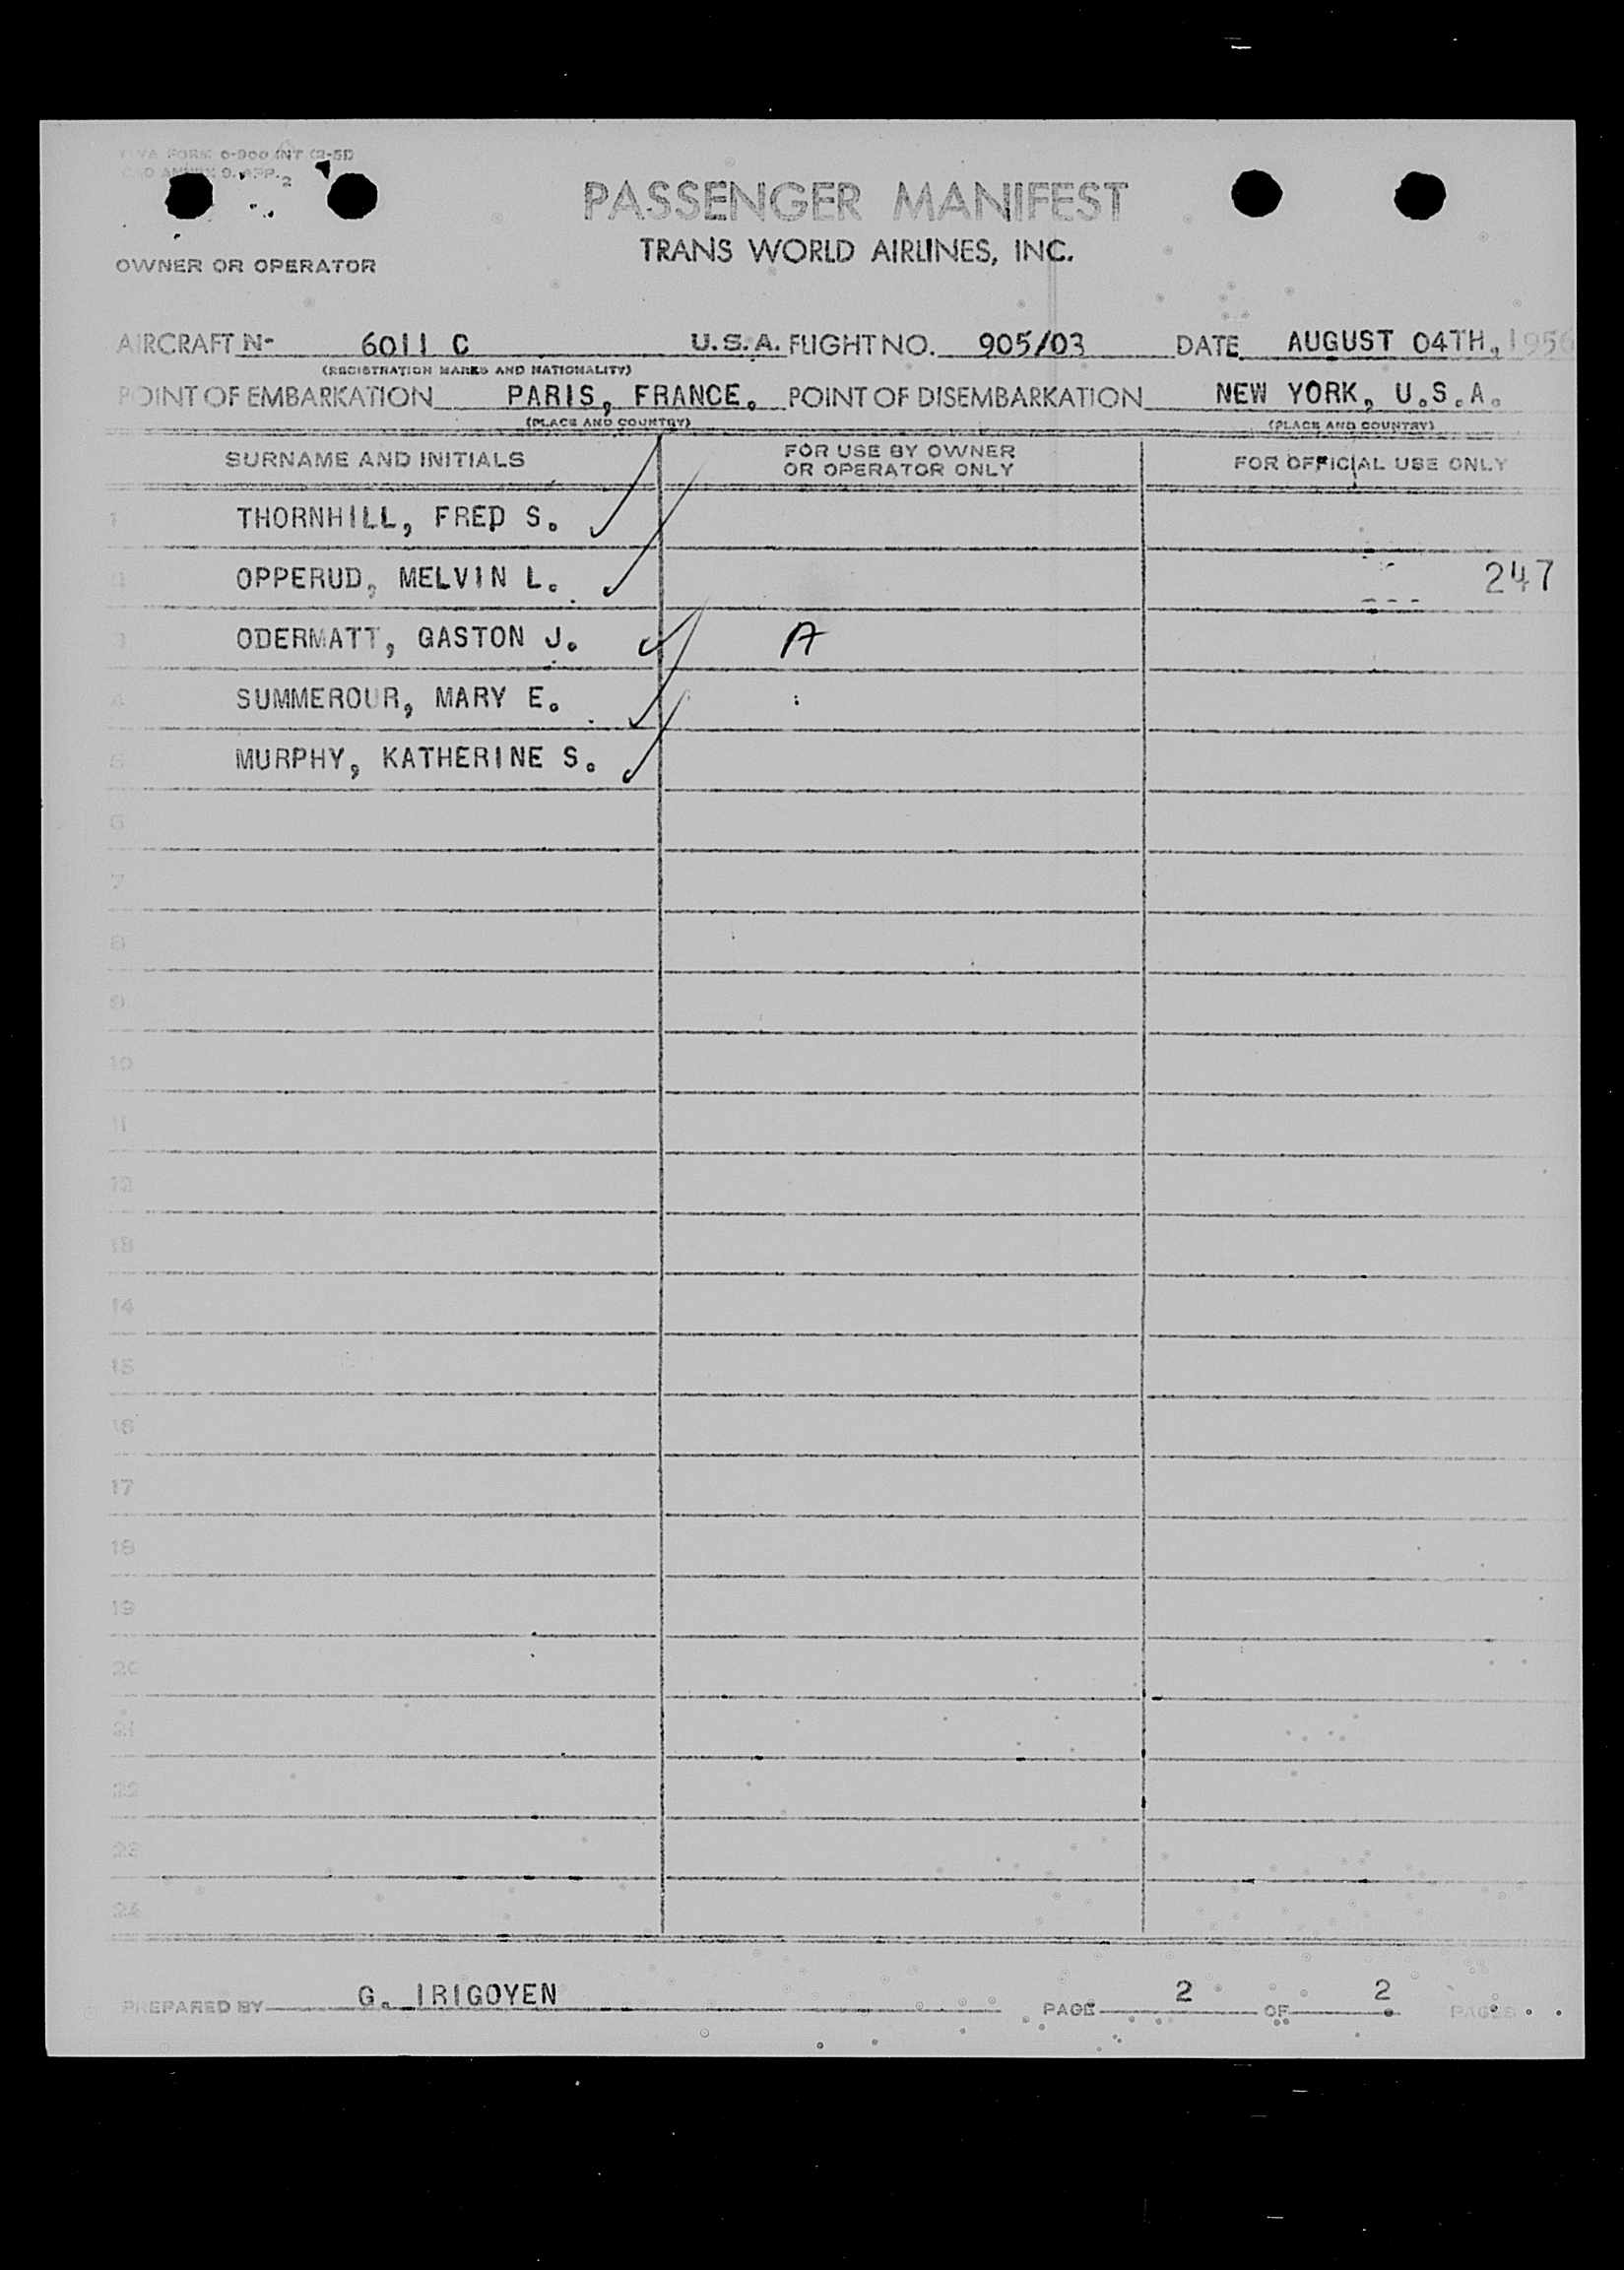 FORM 0-900 INT (2-51)
PASSENGER MANIFEST
TRANS WORLD AIRLINES, INC.
OWNER OR OPERATOR
AIRCRAFT N- 6011 C U.S.A. FLIGHT NO. 905/03 DATE AUGUST 04TH, 1956
(REGISTRATION MARKS AND NATIONALITY)
POINT OF EMBARKATION PARIS, FRANCE. POINT OF DISEMBARKATION NEW YORK, U.S.A.
(PLACE AND COUNTRY) (PLACE AND COUNTRY)
SURNAME AND INITIALS FOR USE BY OWNER OR OPERATOR ONLY FOR OFFICIAL USE ONLY
1 THORNHILL, FRED S.
2 OPPERUD, MELVIN L. 247
3 ODERMATT, GASTON J. A
4 SUMMEROUR, MARY E.
5 MURPHY, KATHERINE S.
6
7
8
9
10
11
12
13
14
15
16
17
18
19
20
21
22
23
24
PREPARED BY G. IRIGOYEN PAGE 2 OF 2 PAGES